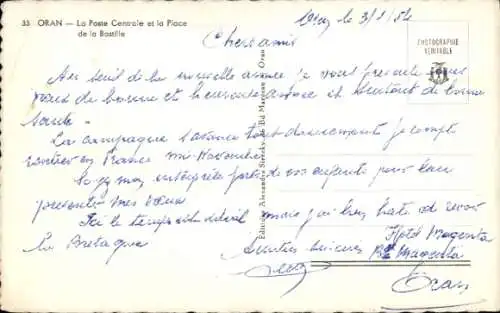 33 ORAN — La Poste Centrale et la Place
de la Bastille
Oran, le 3/1/54
PHOTOGRAPHIE
VERITABLE
Chers amis
Au seuil de la nouvelle année je vous présente mes
vœux de bonne et heureuse année et surtout de bonne
santé.
La campagne s'avance tout doucement je compte
rentrer en France
Soyez mon interprète près de vos enfants pour leur
présenter mes vœux
Ici le temps est idéal mais j'ai bien hâte de revoir
la Bretagne
Hôtel Magenta
Bd Magenta
Oran
Edition Alexandre Bd Oran